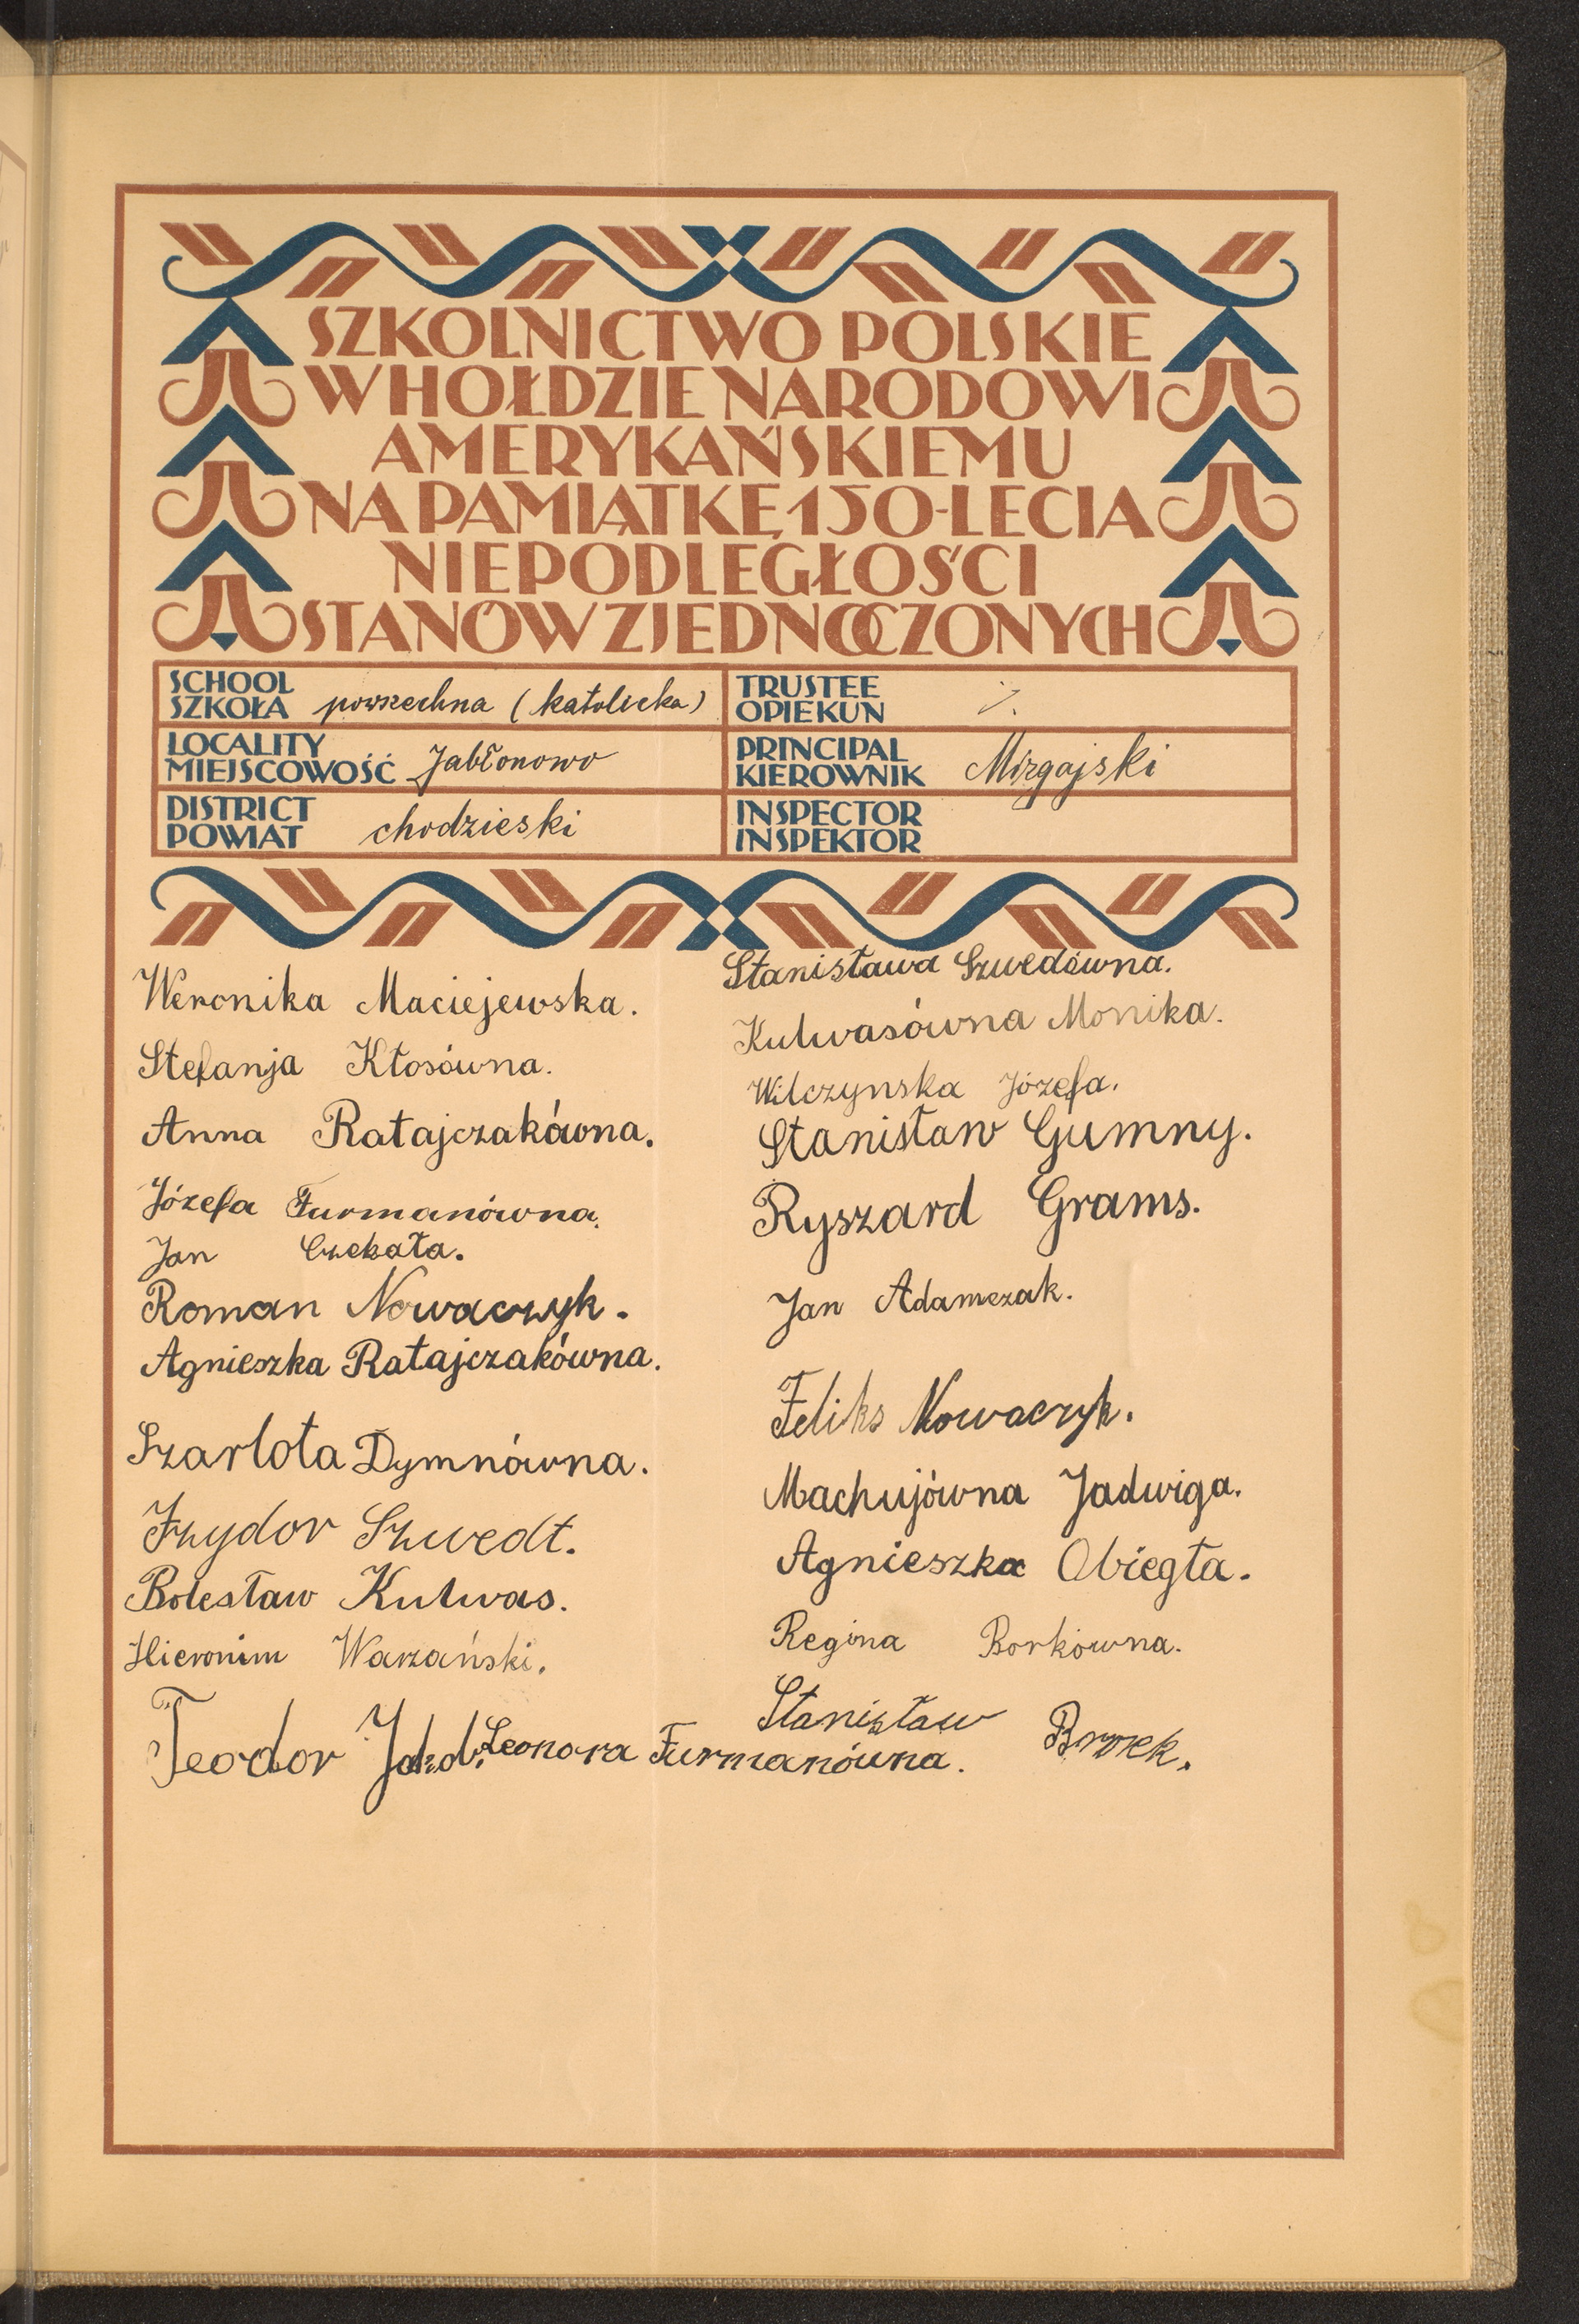 SZKOLNICTWO POLSKIE
W HOŁDZIE NARODOWI
AMERYKAŃSKIEMU
NA PAMIĄTKĘ 150-LECIA
NIEPODLEGŁOŚCI
STANÓW ZJEDNOCZONYCH
SCHOOL
SZKOŁA powszechna (katolicka)
TRUSTEE
OPIEKUN
LOCALITY
MIEJSCOWOŚĆ Jabłonowo
PRINCIPAL
KIEROWNIK Mizgajski
DISTRICT
POWIAT chodzieski
INSPECTOR
INSPEKTOR
Weronika Maciejewska.
Stefanja Kłosówna.
Anna Ratajczakówna.
Józefa Furmanówna.
Jan Czekała.
Roman Nowaczyk.
Agnieszka Ratajczakówna.
Szarlota Dymnówna.
Izydor Szwedt.
Bolesław Kulwas.
Hieronim Warzański.
Teodor
Leonora Furmanówna.
Stanisława Szwedówna.
Kulwasówna Monika.
Wilczynska Józefa.
Stanisław Gumny.
Ryszard Grams.
Jan Adamczak.
Feliks Nowaczyk.
Machujówna Jadwiga.
Agnieszka Obiegła.
Regina Borkówna.
Stanisław Brozek.